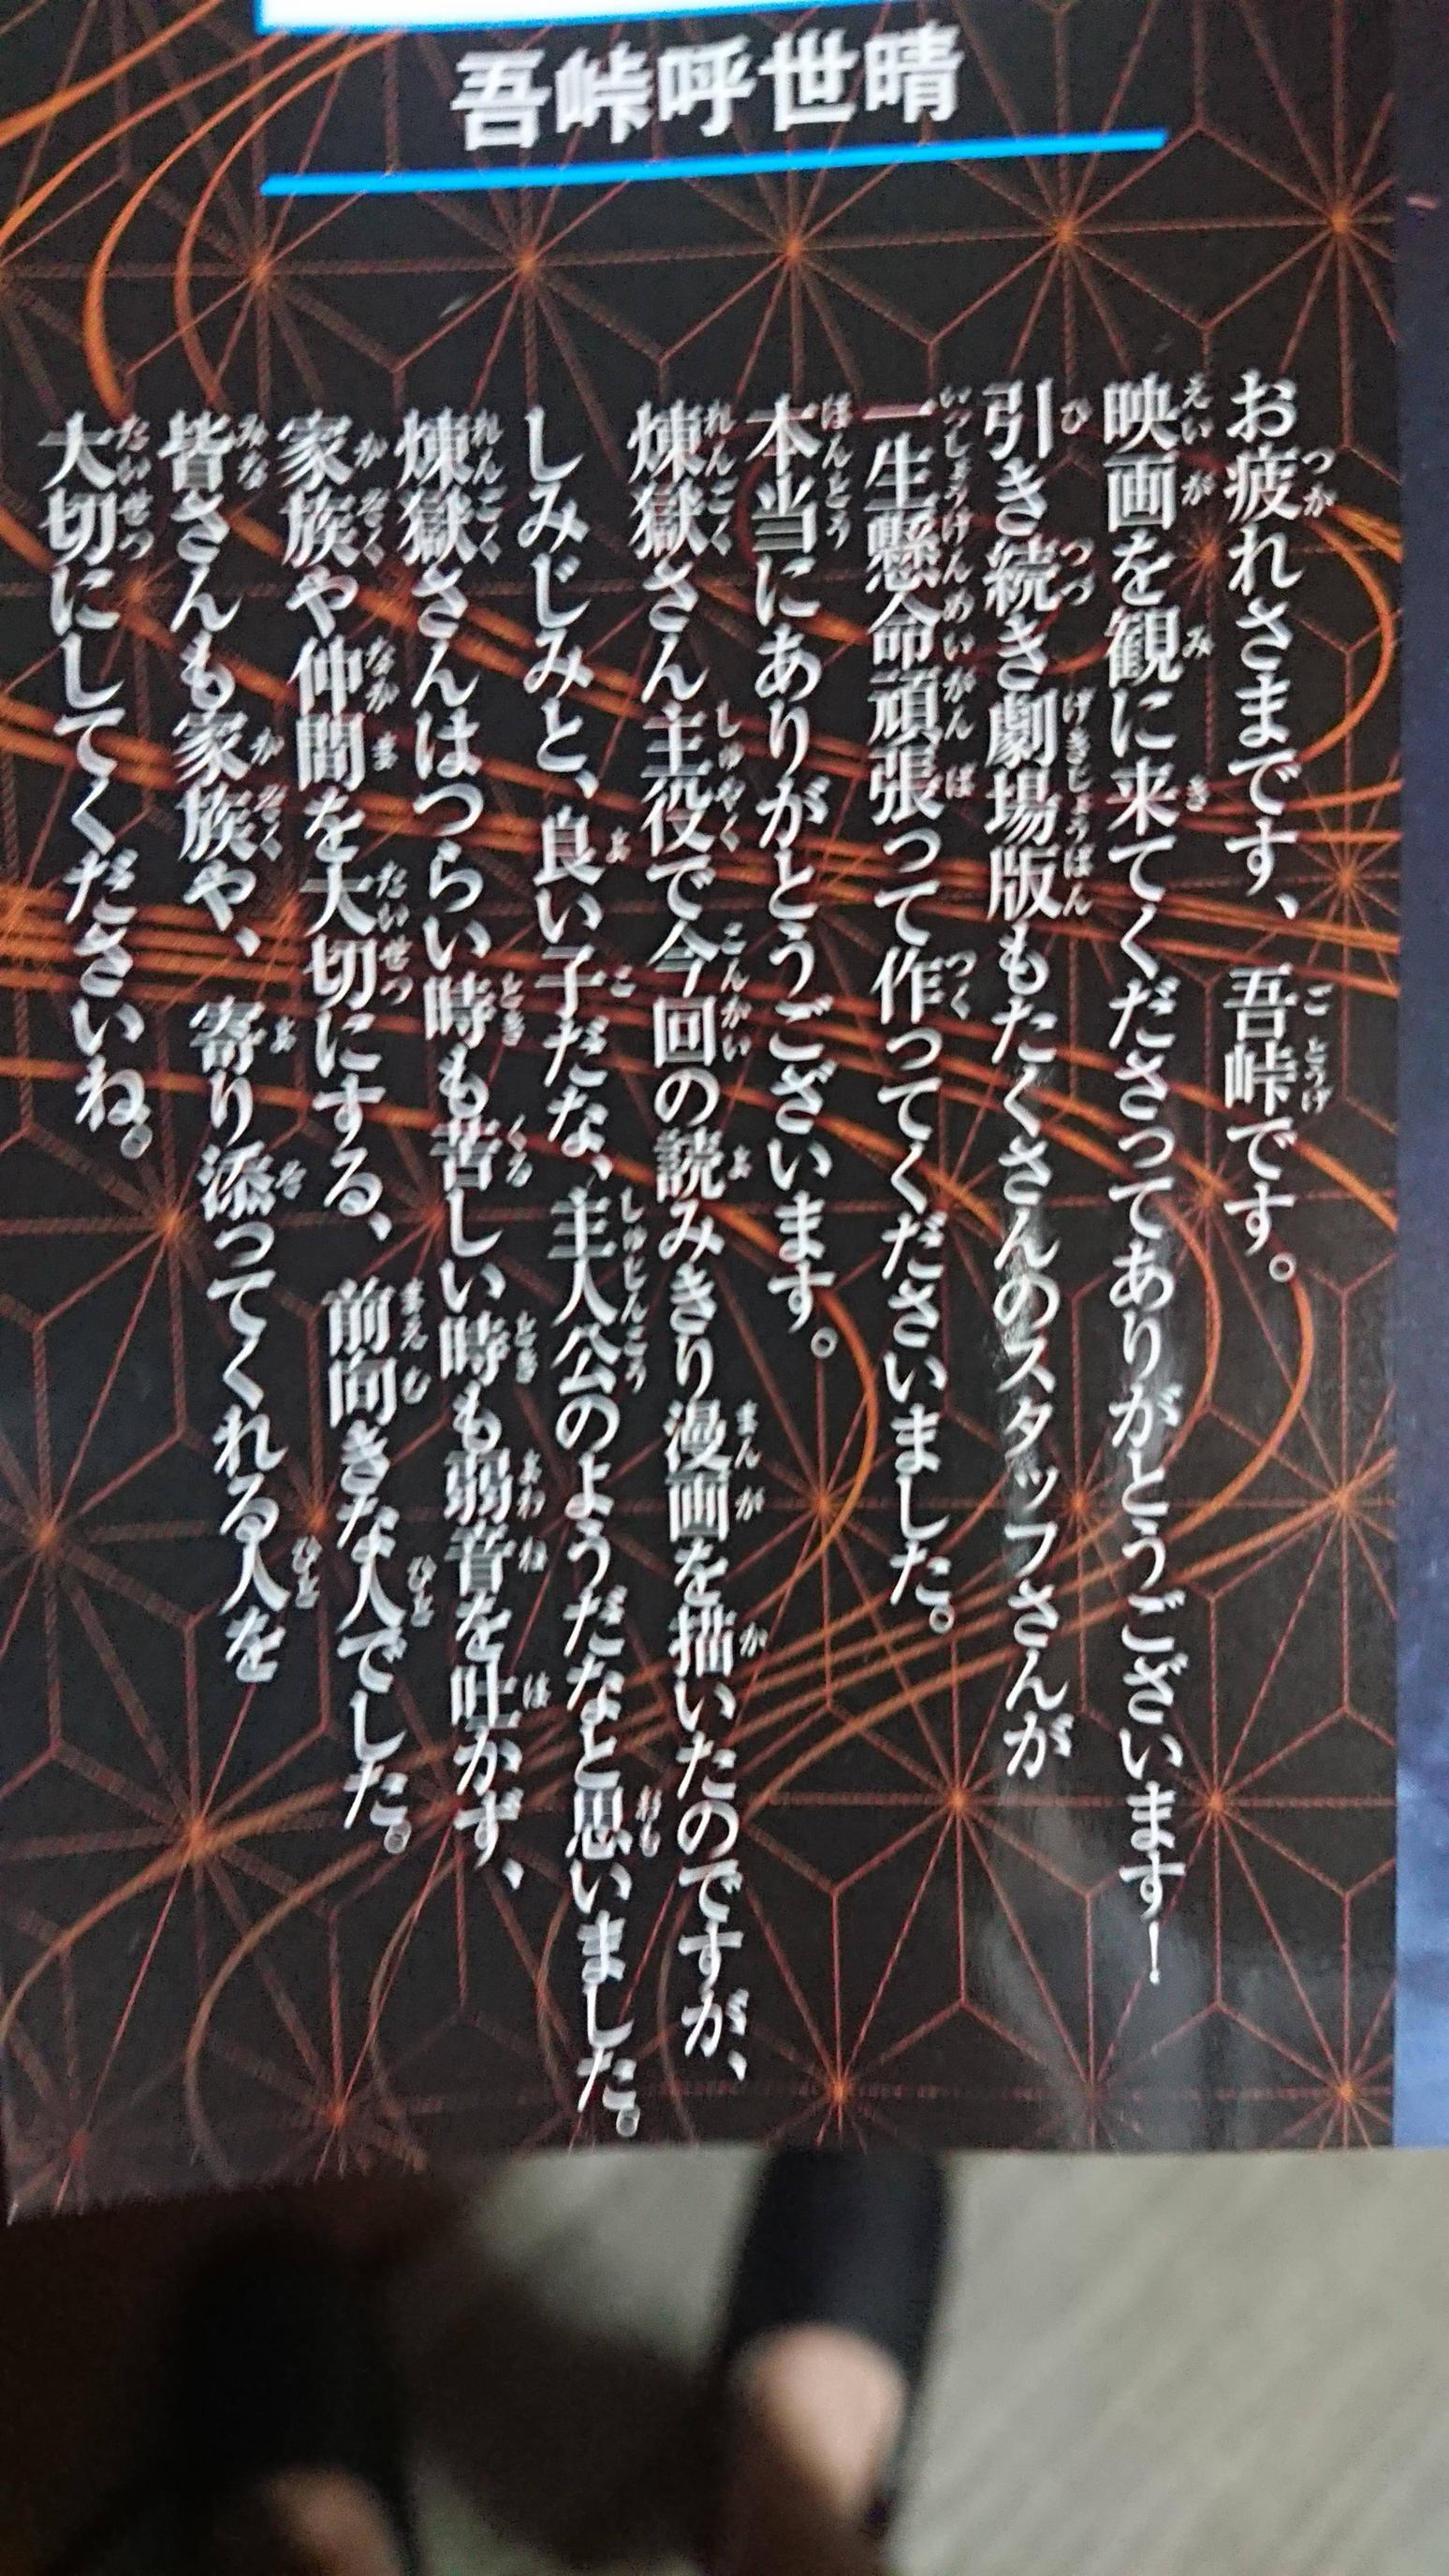 吾峠呼世晴
お疲れさまです、吾峠です。
映画を観に来てくださってありがとうございます!
引き続き劇場版もたくさんのスタッフさんが
一生懸命頑張って作ってくださいました。
本当にありがとうございます。
煉獄さん主役で今回の読みきり漫画を描いたのですが、
しみじみと、良い子だな、主人公のようだなと思いました。
煉獄さんはつらい時も苦しい時も弱音を吐かず、
家族や仲間を大切にする、前向きな人でした。
皆さんも家族や、寄り添ってくれる人を
大切にしてくださいね。